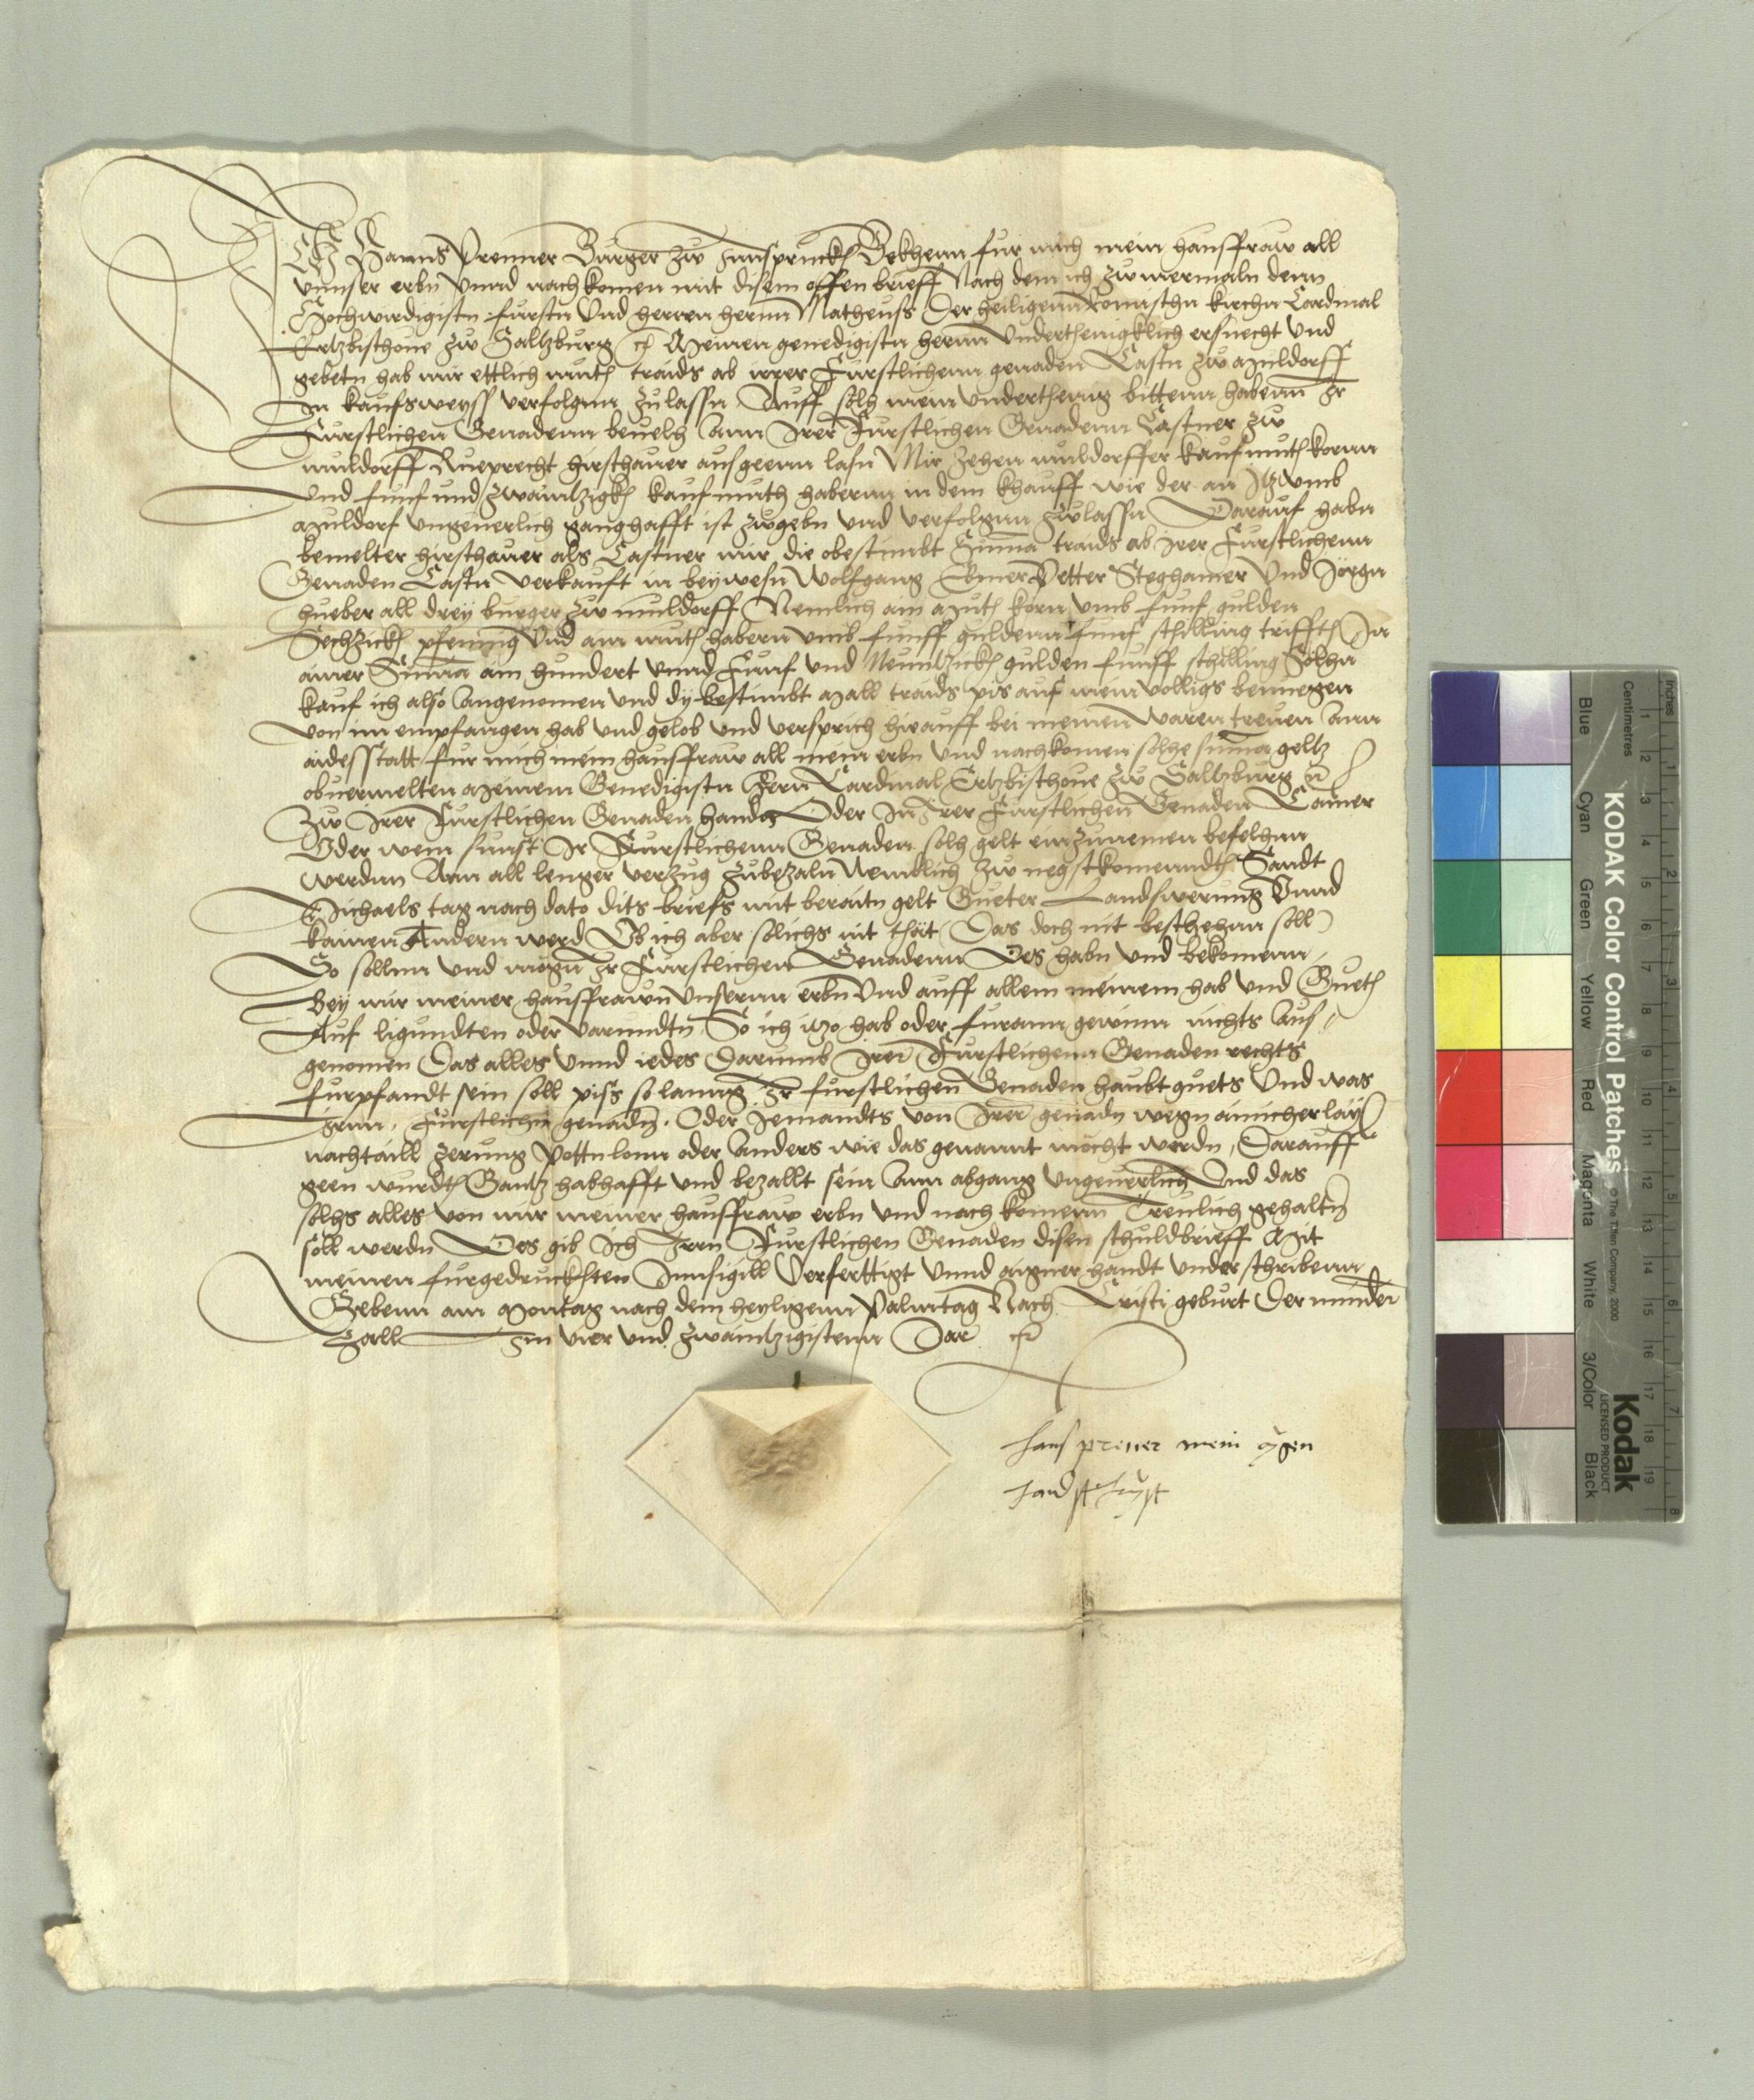 ICh Hanns Prenner Burger zw Innspruckh Bekhenn fur mich mein hausfraw all
vnnser erbn vnnd nachkomen mit disem offen brieff Nach dem ich zw mermaln denn
Hochwirdigistn fursten Vnd herren herrnn Matheuss Der heiligenn Romischn kirchn Cardinal
Ertzbischoue zw Saltzburg rc Meinen genedigistn herrnn Vnderthenigklich ersuecht Vnd
gebetn hab mir ettlich muth traids ab irer Furstlichenn genaden Castn zw Muldorff
In kaufsweyss verfolgnn zulassn Auff solh mein Vnderthenig bittenn habenn Ir
Furstlichen Genadenn beuelh Ann Irer Furstlichen Genadenn Castner zw
muldorff Rueprecht hirsthauer ausgeenn lasn Mir zehen muldorffer kaufmuth kornn
Vnd funf und zwaintzigkh kaufmuth habernn in dem khauff wie der an Itz vmb
Muldorf vngeuerlich ganghafft ist zwgebn vnd verfolgnn zwlassn Darauf habn
bemelter hirsthauer als Castner mir die obestimbt Suma traids ab Irer Furstlichenn
Genaden Castn verkauft in beywesn Wolfgang Ebmer Petter Steghamer Vnd Jörgn
hueber all drey burger zw muldorff Nemlich ain Muth korn vmb funf gulden
Sechzickh pfenning Vnd ain muth habern vmb funff guldenn funf schilling trifft In
ainer Suma ain hundert vnnd Funf vnd Neuntzickh gulden funff schilling Solhn
kauf ich also Angenomen vnd dy bestimbt Mall traids pis auf mein volligs beniegen
von im empfangen hab vnd gelob vnd versprich hirauff bei meinen waren treuen Ann
aidesstatt fur mich mein hausfraw all mein erbn vnd nachkomen solhe suma geltz
obuermelten Meinem Genedigistn Hern Cardinal Ertzbischoue zw Saltzburg rc
Zw Irer Furstlichen Genaden handn Oder In Irer Furstlichen Genaden Camer
Oder wem sunst Ir Furstlichenn Genaden solh gelt einzunemen befelhnn
werdnn Ann all lenger verzug zubezaln Nemlich zw negstkomenndtn Sandt
Michaels tag nach dato dits briefs mit beraitn gelt Gueter Landswerung Vnnd
kainen Andern werd Ob ich aber solichs nit thät Das doch nit beschehnn soll
So sollnn vnd mögn Ir Furstlichen Genadenn Des habn vnd bekomenn
Bey mir meiner hausfrawn Vnsernn erbn Vnd auff allem meinem hab vnd Gueth
Auf ligundten oder Varundtn So ich itzo hab oder furann gewinn nichts Aus
genomen Das alles vnnd iedes Darumb Irer Furstlichenn Genaden rechts
furpfandt sein soll piss so lanng Ir furstlichen Genaden haubtguets Vnd was
Irnn Furstlichn genadn Oder Iemandts von Irer genadn wegn ainicherlay
nachtaill zerung Pottnlonn oder Anders wie das genannt möcht werdn Darauff
geen wurdt Gantz habhafft vnd bezallt sein Ann abgang vngeuerlich Vnd das
solhs alles von mir meiner hausfraw erbn vnd nach komenn Treulich gehaltn
soll werdn Des gib Ich Irrn Furstlichen Genaden disen schuldbrieff Mit
meinen furgedruckhten Innsigill Verferttigt Vnnd aigner handt vnderschribenn
Gebenn am Montag nach dem heyligenn Palmtag Nach Cristi geburt Der minder
Zall Im vier vnd zwaintzigistenn Jar rc
hans prener mein aygen
handschryft
KODAK Color Control Patches
© The Tiffen Company, 2000
Kodak
LICENSED PRODUCT
Inches
Centimetres
Blue Cyan Green Yellow Red Magenta White 3/Color Black
1 2 3 4 5 6 7 8 9 10 11 12 13 14 15 16 17 18 19
1 2 3 4 5 6 7 8